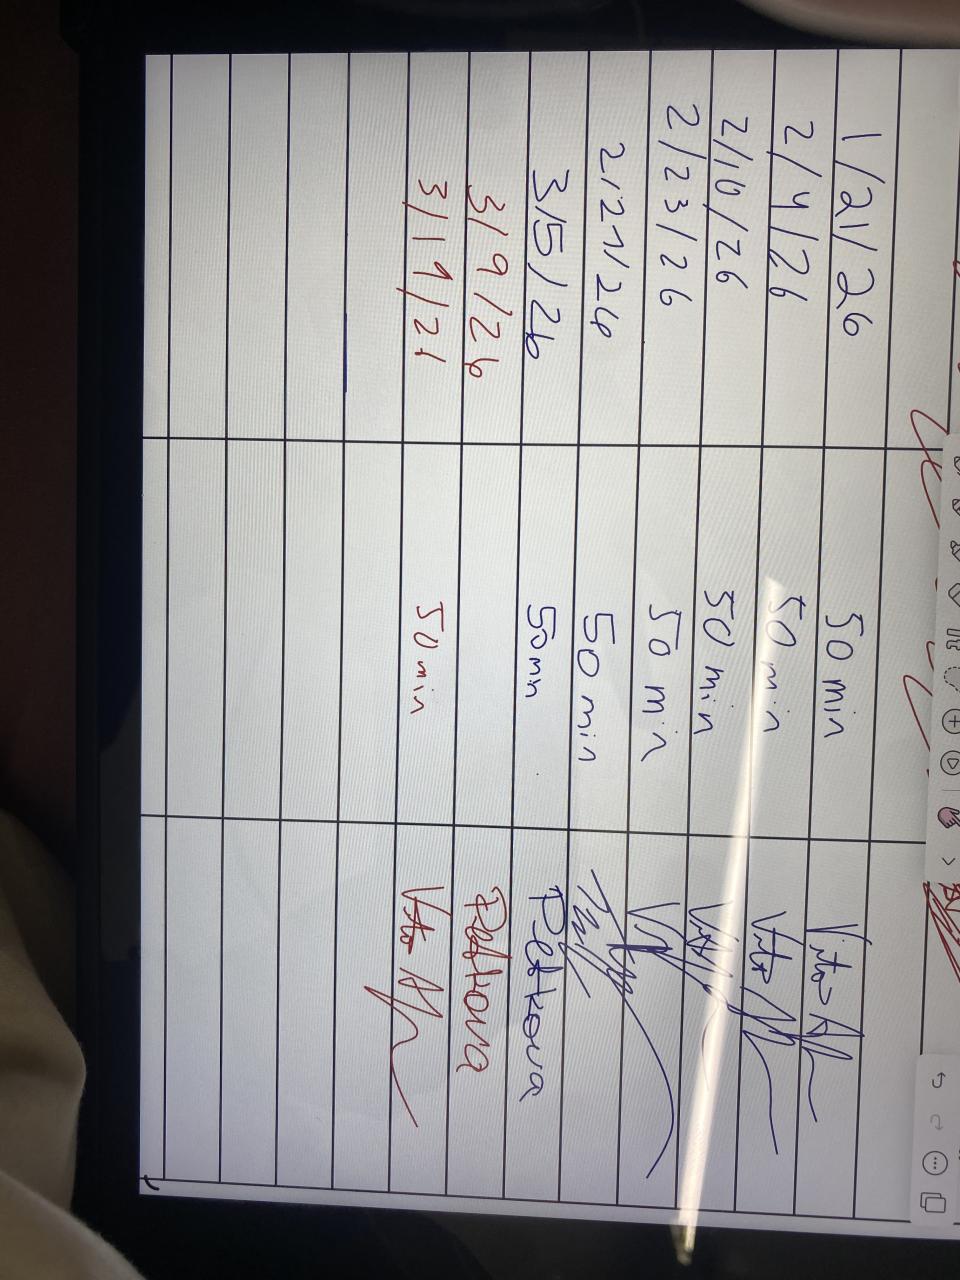 1/21/26 50 min
2/4/26 50 min
2/10/26 50 min
2/23/26 50 min
2/27/26 50 min
3/5/26 50mn Petkova
3/9/26 Petkova
3/19/26 50min